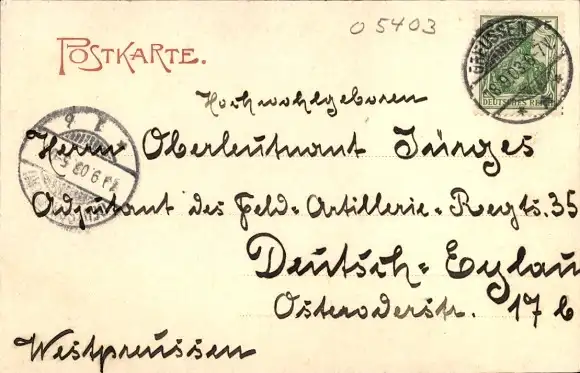 0 5403
POSTKARTE.
GREUSSEN
8.9.03.6-7N.
DEUTSCHES REICH
Hochwohlgeboren
Herrn Oberleutnant Jürges
Adjutant des Feld-Artillerie-Regts. 35
Deutsch-Eylau
Osteroderstr. 17 b
Westpreussen